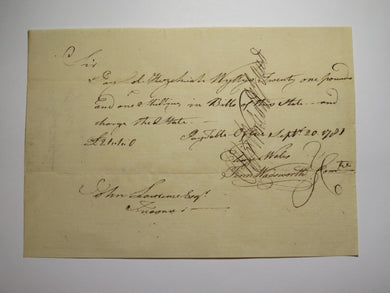 Sir
Pay Col. Hezekiah Wyllys Twenty one pounds
and one shillings in Bills of this State — and
charge the State —
£21.1.0 Pay Table Office Sept 20. 1781
Wales
Wadsworth Comtee
John Lawrence Esqr
Treasurer